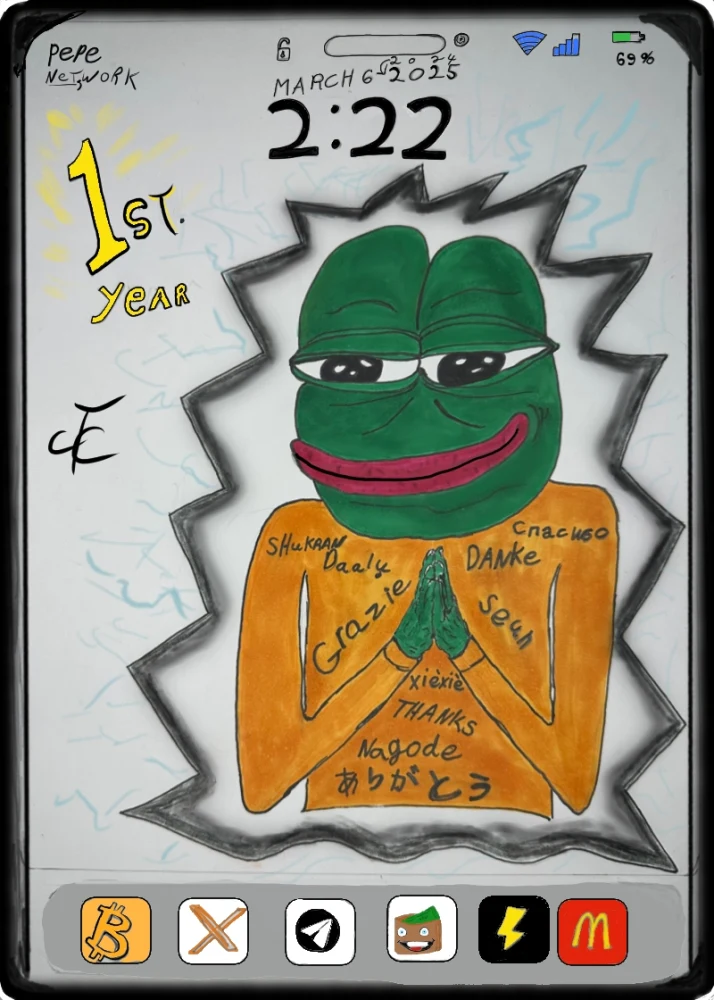 PePe
NeTWORK
69 %
MARCH 6 2025
2024
2:22
1ST.
YEAR
SHUKRAN
Daalụ
Grazie
Спасибо
DANKe
xièxiè
THANKS
Nagode
ありがとう